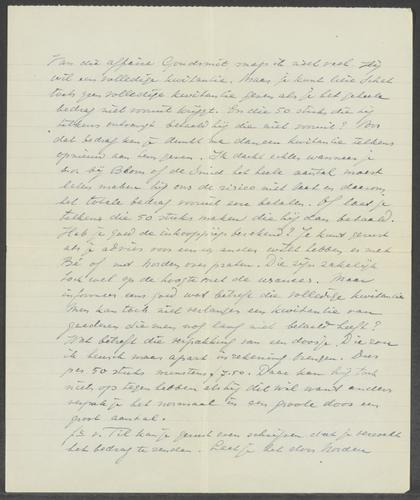 Van die affaire Goudsmit snap ik niet veel. Hij
wil een volledige kwitantie. Maar je kunt beste Schat
toch geen volledige kwitantie geven als je het geheele
bedrag niet vooruit krijgt. En die 50 stuks die hij
telkens ontvangt betaald hij die niet vooruit? Voor
dat bedrag kan je dunkt me dan een kwitantie telkens
opnieuw aan hem geven. Ik dacht echter wanneer je
het heele aantal moest
laten maken hij ons de risico niet laat en daarom
het totale bedrag vooruit zou betalen. Of laat je
telkens die 50 stuks maken die hij dan betaald.
Heb je goed de inkoopprijs berekend? Je kunt gerust
als je advies voor een en ander wilt hebben er met
Bé of met over praten. Die zijn zakelijk
toch wel op de hoogte met de usances. Maar
informeer eens goed wat betreft die volledige kwitantie
Men kan toch niet verlangen een kwitantie van
goederen die men nog lang niet betaald heeft?
Wat betreft die verpakking van een doosje. Die zou
ik heusch maar apart in rekening brengen. Dus
per 50 stuks minstens 7.50. Daar kan hij toch
niets op tegen hebben als hij dit wil want anders
verpak je het normaal in een groote doos een
groot aantal.
v. Til kan je gerust even schrijven dat je verzoekt
het bedrag te zenden. Laat je het door